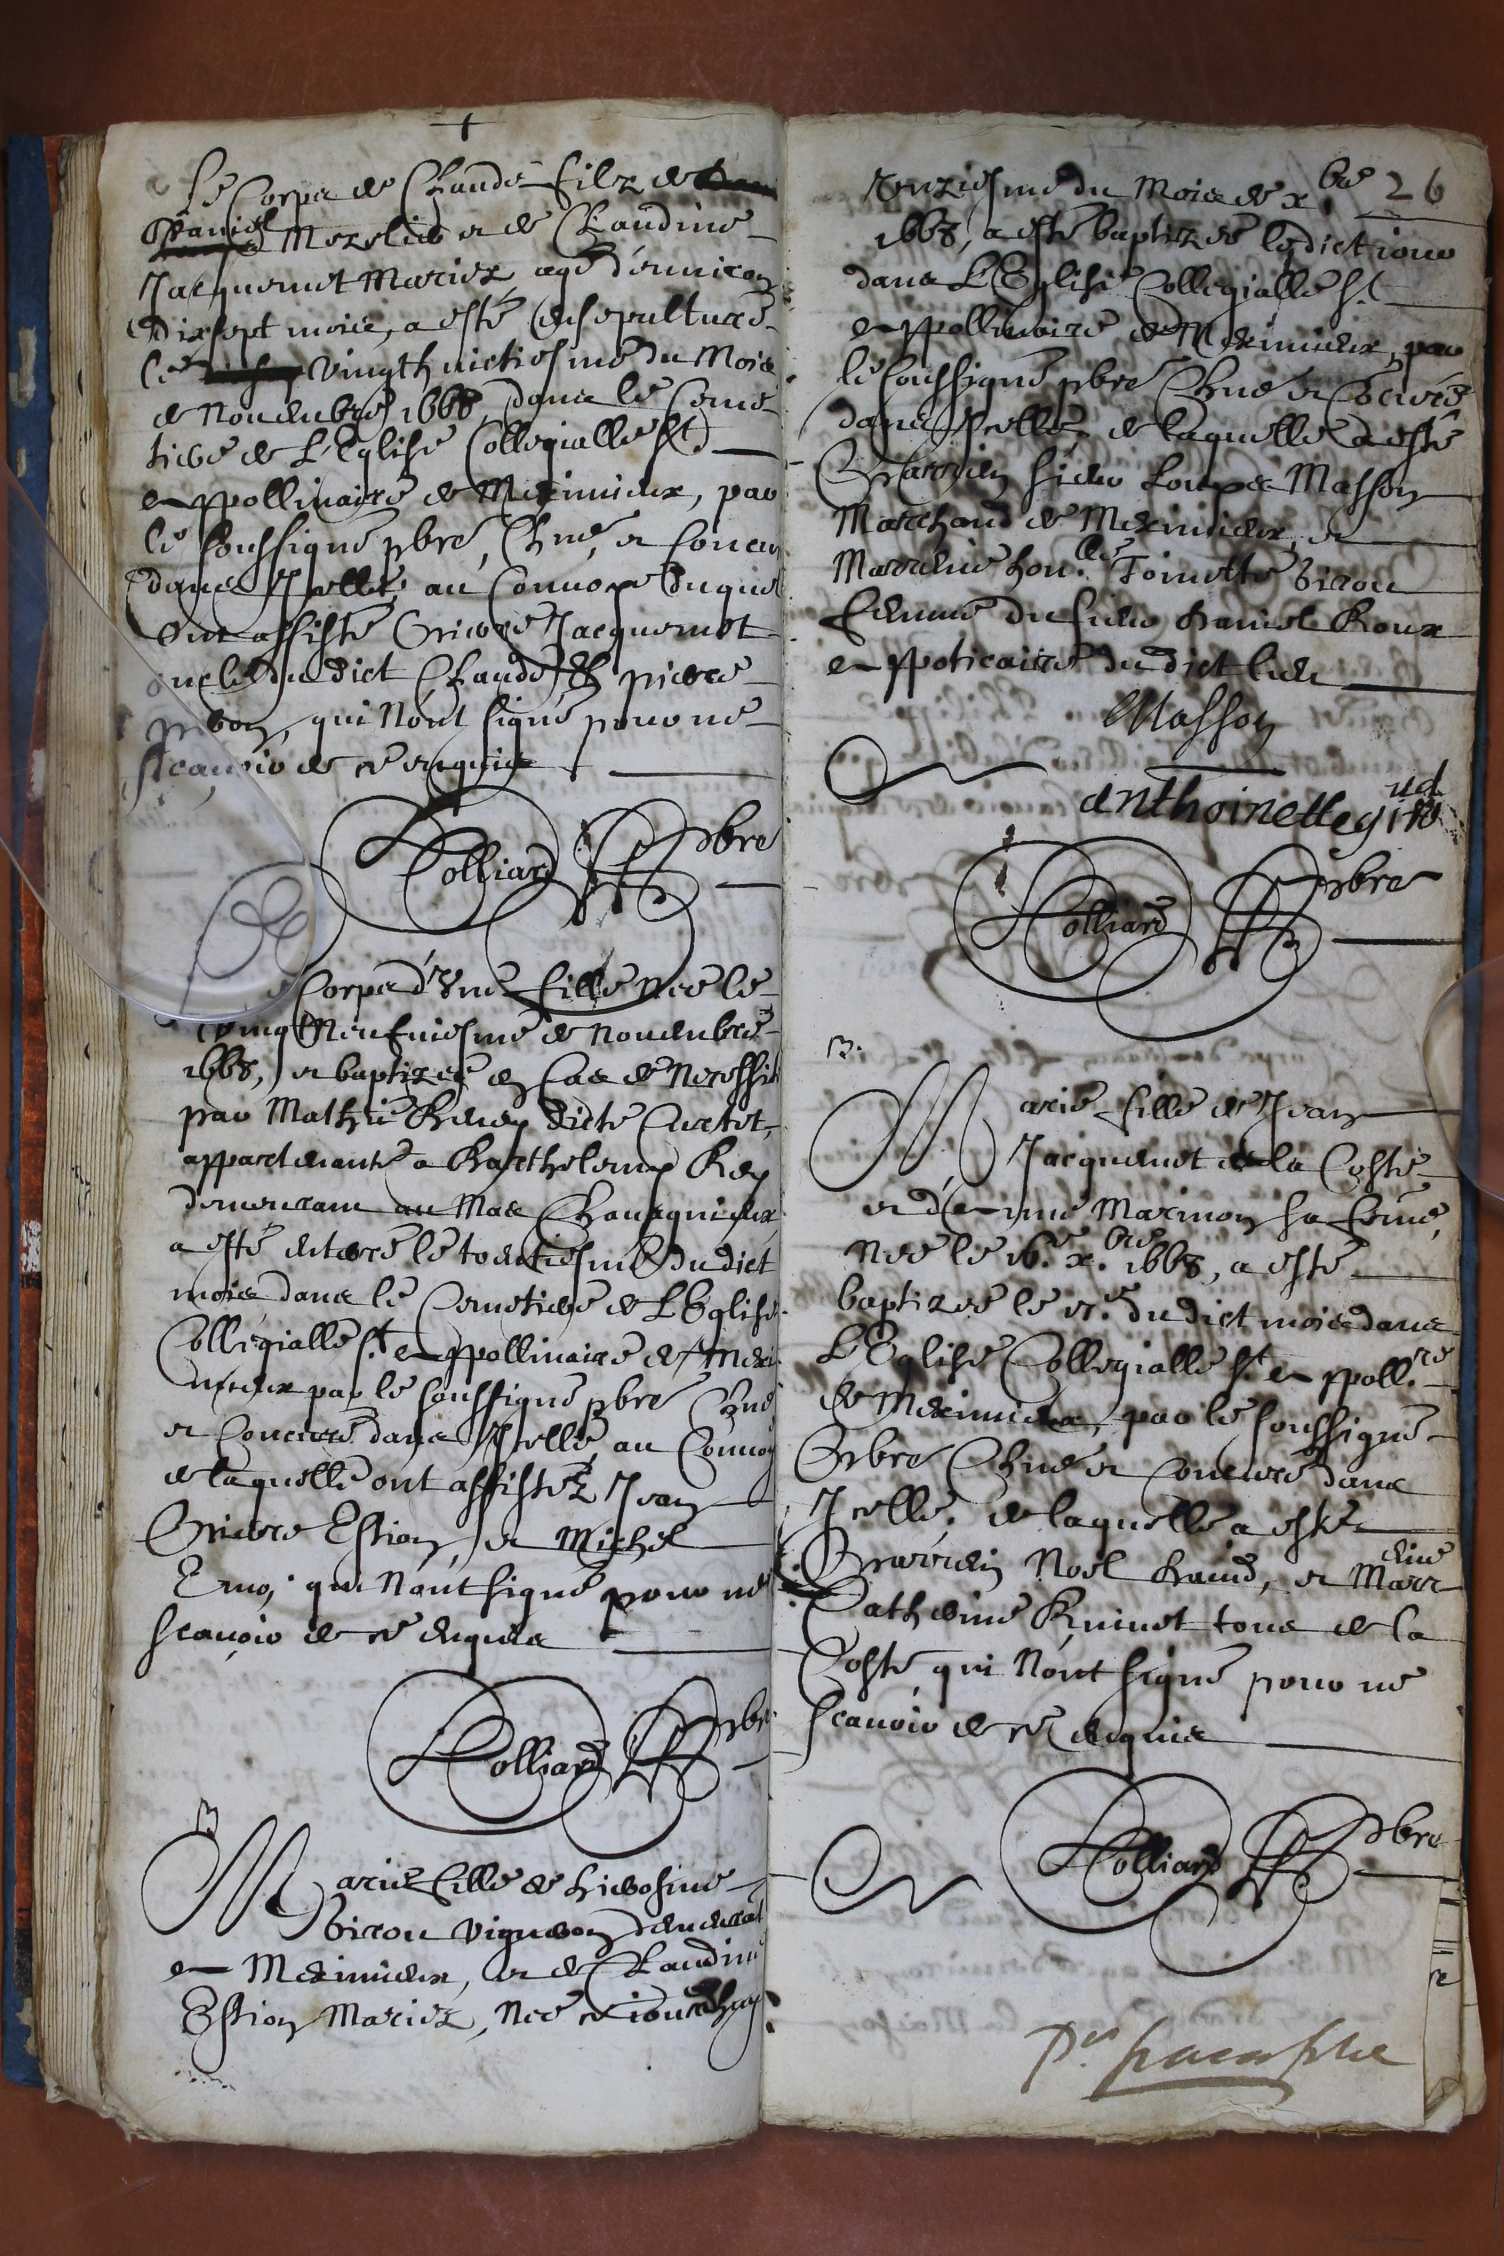 +
Le Corps de Claude filz de
Daniel Mezelier et de Claudine
Jacquemet Mariez, agé d'environ
Dixsept mois, a esté ensepulturé
le vingthuictiesme du Mois
de Novembre 1668, dans le Ceme-
tiere de L'Eglise Collegialle St
Appollinaire de Meximieux, par
le soussigné pbre, Chne, et Concuré
dans Icelle, au Convoy duquel
ont assisté Pierre Jacquemet
oncle du dict Claude et pierre
qui N'ont signé pour ne
scavoir de ce enquis
Rolliard pbre
Corps d'vne fille Née le
vingtNeufviesme de Novembre
1668, et baptizée en Cas de Necessité
par Mathie dicte Curtet,
appartenante a Barthelemy Rey
demeurant au Mas Chavagnieux
a esté enterré le trentiesme du dict
mois dans le Cemetiere de L'Eglise
Collegialle St Appollinaire de Mexi
mieux par le soussigné pbre Chne
et Concuré dans Icelle au Convoy
de laquelle ont assistéz Jean
Pierre Estion, et Michel
qui N'ont signé pour ne
scavoir de ce enquis
Rolliard pbre
B
Marie fille de hierosme
Girou vigneron demeurant
a Meximieux, et de Claudine
Estion Mariez, Née ce jourdhuy
26
onziesme du Mois de x.bre
1668, a esté baptizée ledict jour
dans L'Eglise Collegialle St
Appollinaire de Meximieux, par
le soussigné pbre Chne et Concuré
dans Icelle, de laquelle a esté
Parrein sieur Loupes Masson
Marchand de Meximieux, et
Marreine hon.lle Toinette Girou
femme du sieur Daniel Roux
Appoticaire du dict lieu
Masson
anthoinette giroud
Rolliard pbre
B.
Marie fille de Jean
Jacquemet de la Coste
et d'Anne Marinon sa feme,
Née le 16.e x.bre 1668, a esté
baptizée le 17.e du dict mois dans
L'Eglise Collegialle St Appoll.re
de Meximieux, par le soussigné
Pbre Chne et Concuré dans
Icelle, de laquelle a esté
Parrein Noel David, et Marreine
Catherine Ruinet tous de la
Coste, qui N'ont signé pour ne
scavoir de ce enquis
Rolliard pbre